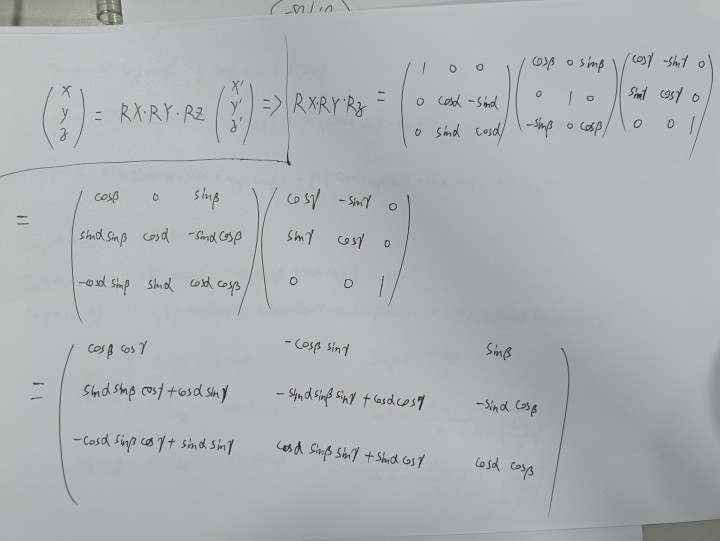 (x y z) = RX·RY·RZ (x' y' z') => RX·RY·Rz = (1 0 0; 0 cosα -sinα; 0 sinα cosα) (cosβ 0 sinβ; 0 1 0; -sinβ 0 cosβ) (cosγ -sinγ 0; sinγ cosγ 0; 0 0 1)
= (cosβ 0 sinβ; sinα sinβ cosα -sinα cosβ; -cosα sinβ sinα cosα cosβ) (cosγ -sinγ 0; sinγ cosγ 0; 0 0 1)
= (cosβ cosγ -cosβ sinγ sinβ
sinα sinβ cosγ + cosα sinγ -sinα sinβ sinγ + cosα cosγ -sinα cosβ
-cosα sinβ cosγ + sinα sinγ cosα sinβ sinγ + sinα cosγ cosα cosβ)